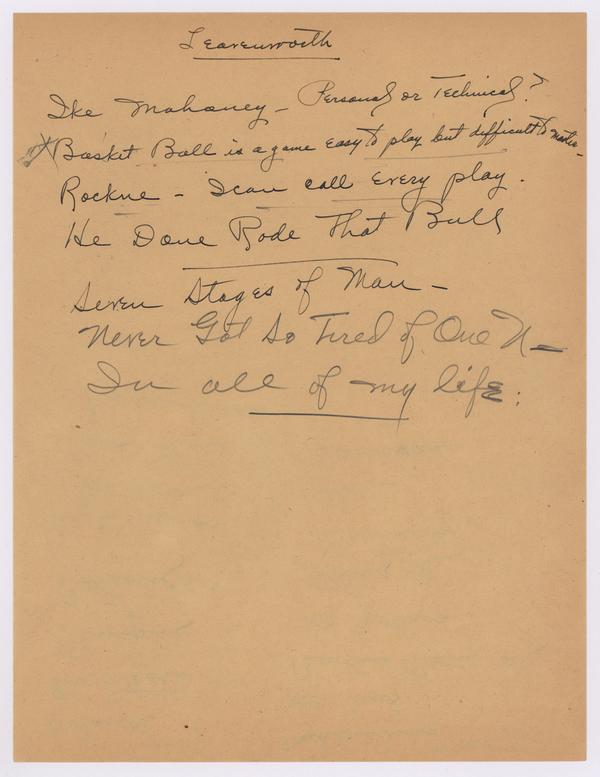 Leavenworth
Ike Mahaney - Personal or Technical?
Basket Ball is a game easy to play but difficult to master -
Rockne - I can call every play.
He Done Rode That Bull
Seven Stages of Man -
Never Got So Tired of One N -
In all of my life.